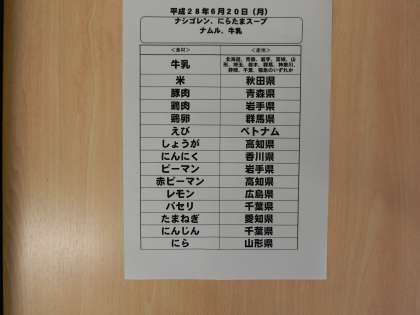 平成28年6月20日（月）
ナシゴレン、にらたまスープ
ナムル、牛乳
＜食材＞ ＜産地＞
牛乳 北海道、青森、岩手、宮城、山
形、埼玉、栃木、群馬、神奈川、
静岡、千葉、福島のいずれか
米 秋田県
豚肉 青森県
鶏肉 岩手県
鶏卵 群馬県
えび ベトナム
しょうが 高知県
にんにく 香川県
ピーマン 岩手県
赤ピーマン 高知県
レモン 広島県
パセリ 千葉県
たまねぎ 愛知県
にんじん 千葉県
にら 山形県